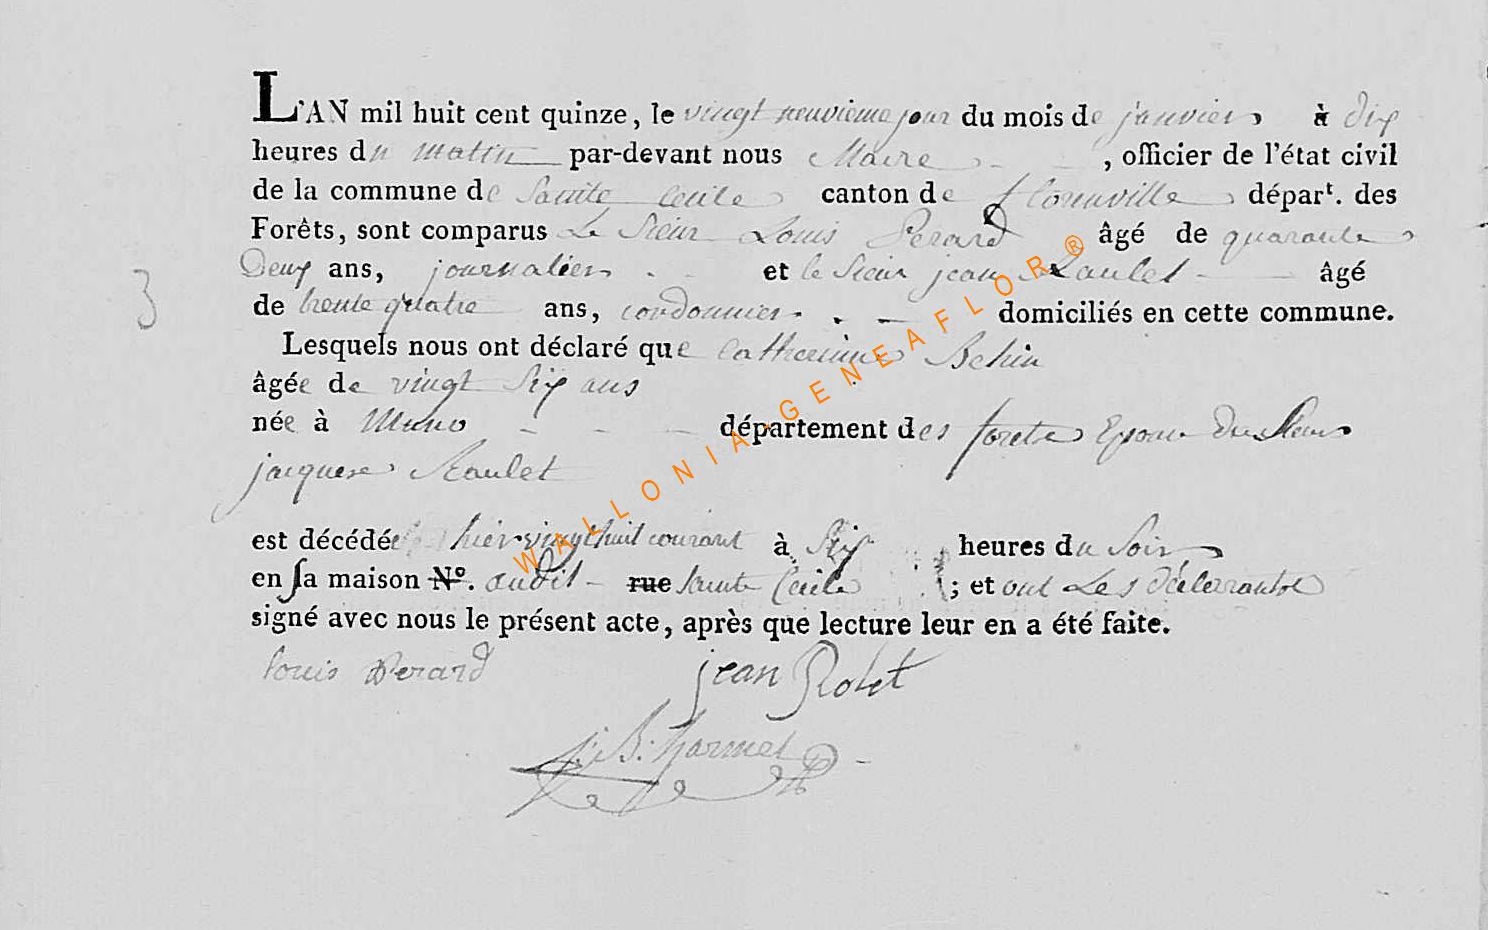 L'AN mil huit cent quinze, le vingt neuvieme jour du mois de janvier à dix
heures du matin par-devant nous Maire , officier de l'état civil
de la commune de Sainte Cecile canton de florenville dépar<sup>t</sup>. des
Forêts, sont comparus Le Sieur Louis Perard âgé de quarante
Deux ans, journalier et le Sieur jean âgé
3
de trente quatre ans, cordonnier domiciliés en cette commune.
Lesquels nous ont déclaré que Catherine
âgée de vingt Six ans
née à Muno département des forets Epouse du Sieur
jacques
est décédée hier vingt huit courant à Six heures du Soir
en sa maison N°. audit rue Sainte Cecile ; et ont Les déclarants
signé avec nous le présent acte, après que lecture leur en a été faite.
louis Perard jean Rolet
j: B: harmel
WALLONIA-GENEAFLOR®